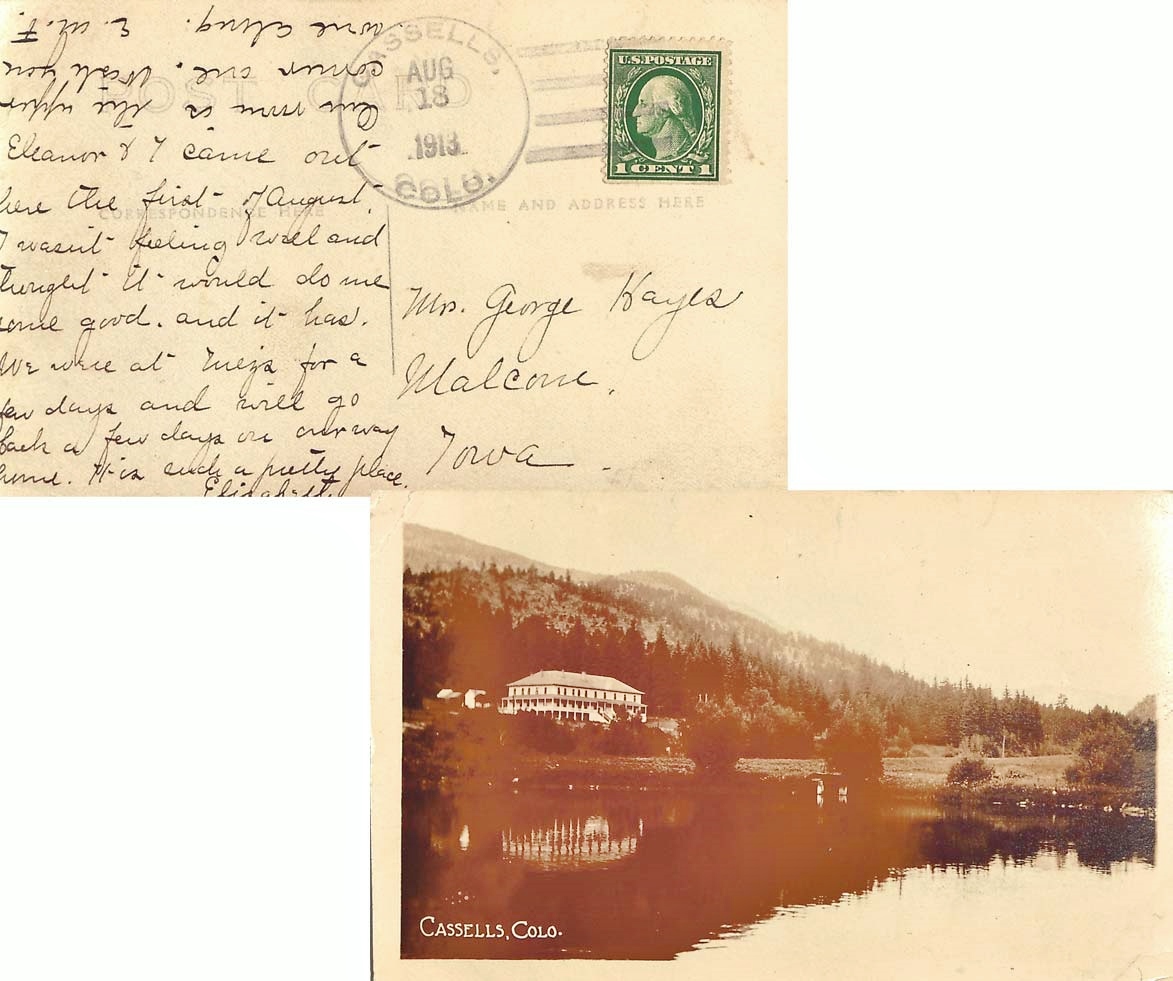 Our room is the upper
corner one. Wish you
were along. E. M. F.
POST CARD
CASSELLS,
AUG
18
1913
COLO.
U.S. POSTAGE
1 CENT 1
Eleanor & I came out
here the first of August.
CORRESPONDENCE HERE
NAME AND ADDRESS HERE
I wasn't feeling well and
thought it would do me
some good. and it has.
We were at for a
few days and will go
back a few days on our way
home. It is such a pretty place.
Elizabeth
Mrs. George Hayes
Malcom,
Iowa
CASSELLS, COLO.